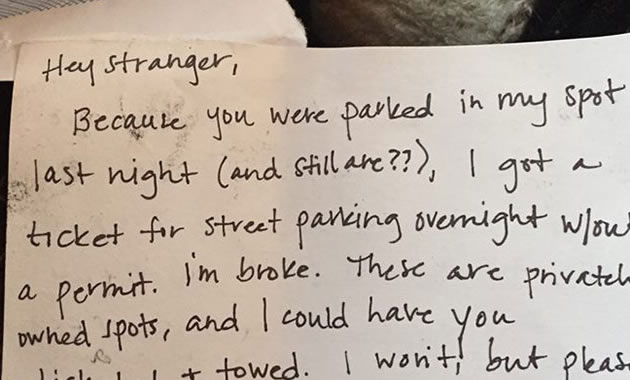 Hey stranger,
Because you were parked in my spot
last night (and still are??), I got a
ticket for street parking overnight w/out
a permit. I'm broke. These are privately
owned spots, and I could have you
towed. I won't, but please